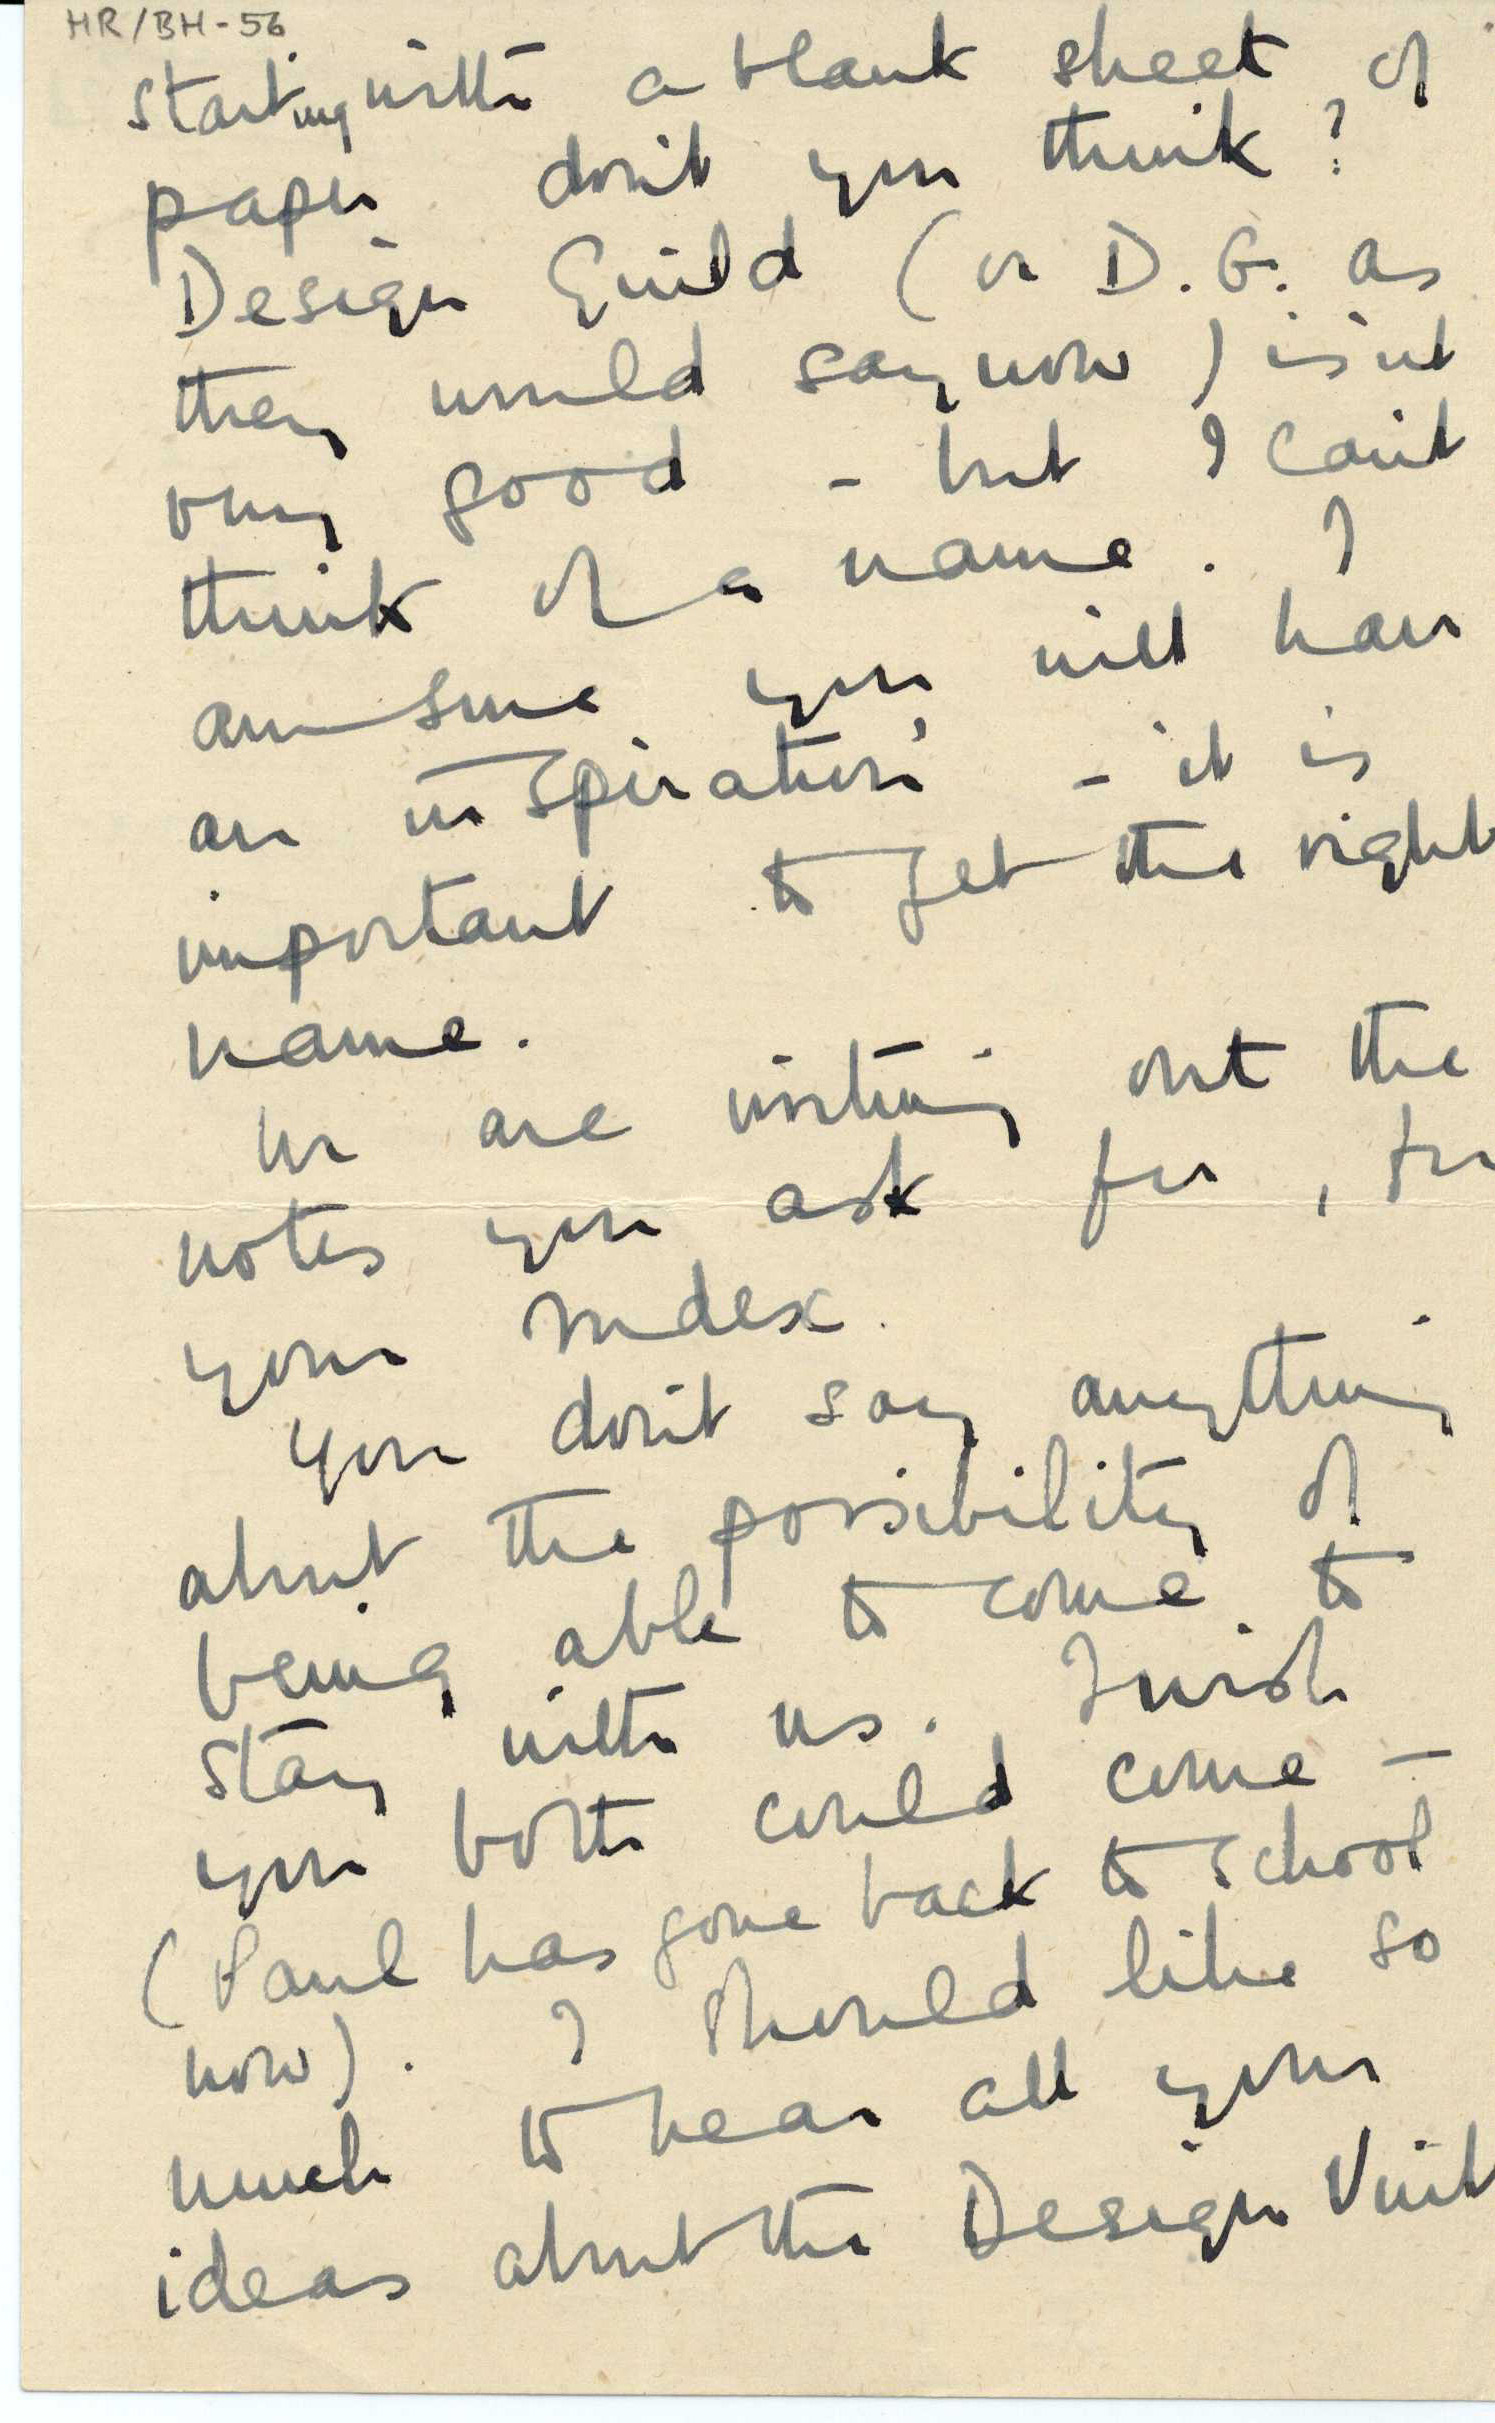 HR/BH-56
starting with a blank sheet of
paper don't you think?
Design Guild (or D.G. as
they would say now) isn't
very good - but I can't
think of a name. I
am sure you will have
an 'inspiration' - it is
important to get the right
name.
We are writing out the
notes you ask for, for
your Index.
You don't say anything
about the possibility of
being able to come to
stay with us. I wish
you both could come -
(Paul has gone back to school
now). I should like so
much to hear all your
ideas about the Design Unit